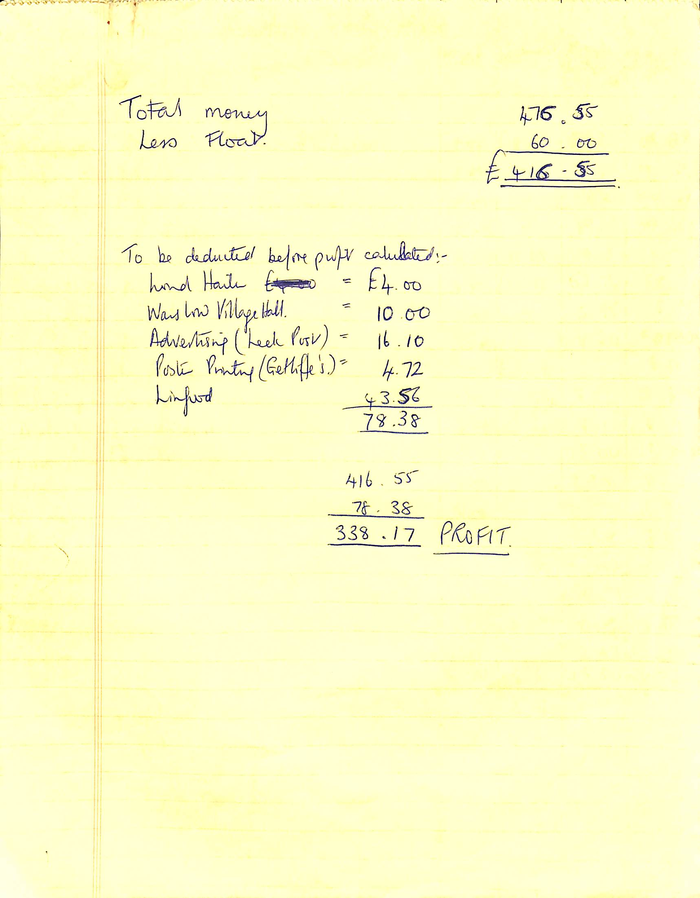 Total money 476.55
Less Float. 60.00
£ 416-55
To be deducted before profit calculated:-
= £4.00
Warslow Village Hall. = 10.00
Advertising (Leek Post) = 16.10
Poster Printing (Getliffe's.) = 4.72
Linfood 43.56
78.38
416.55
78.38
338.17 PROFIT.